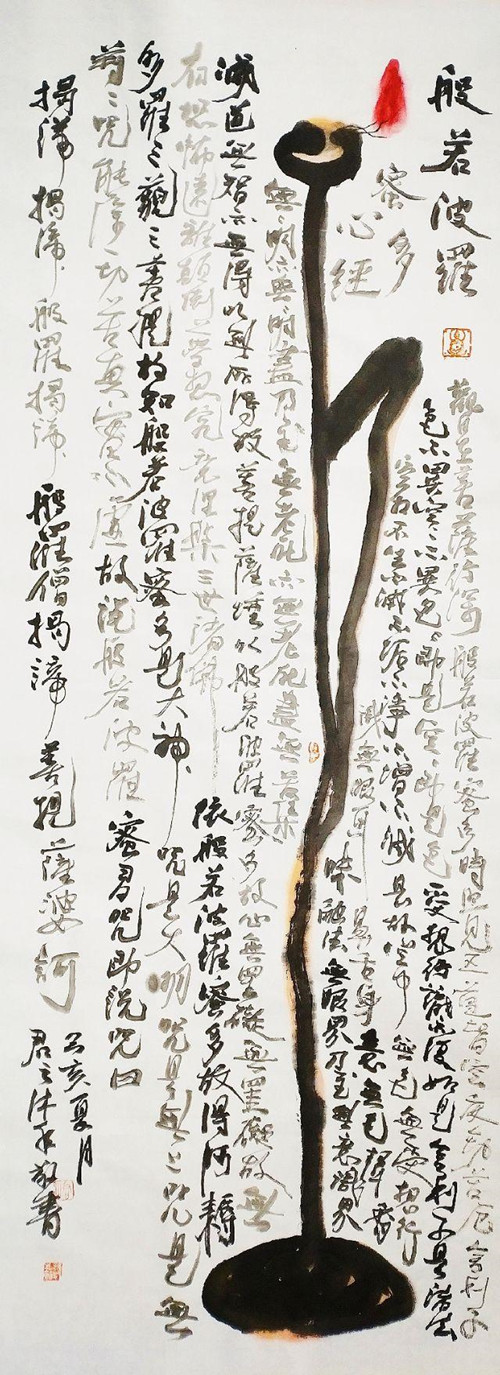 般若波羅
蜜多
心經
觀自在菩薩行深般若波羅蜜多時照見五蘊皆空度一切苦厄舍利子
色不異空々不異色々即是空々即是色受想行識亦復如是舍利子是諸法
空相不生不滅不垢不淨不增不減是故空中無色無受想行
識無眼耳鼻舌身意無色聲香
味觸法無眼界乃至無意識界
無々明亦無々明盡乃至無老死亦無老死盡無苦集
滅道無智亦無得以無所得故菩提薩埵依般若波羅蜜多故心無罣礙無罣礙故無
有恐怖遠離顛倒夢想究竟涅槃三世諸佛
依般若波羅蜜多故得阿耨
多羅三藐三菩提故知般若波羅蜜多是大神
咒是大明咒是無上咒是無
等々咒能除一切苦真實不虛故說般若波羅蜜多咒即說咒曰
揭諦揭諦般羅揭諦般羅僧揭諦菩提薩婆訶
己亥夏月
君之沐手敬書